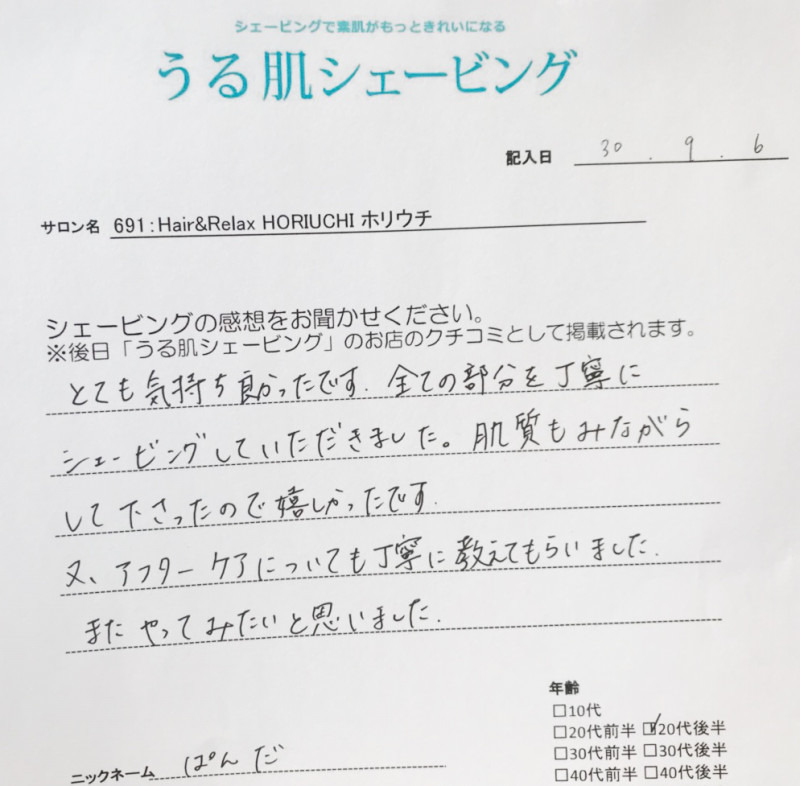 シェービングで素肌がもっときれいになる
うる肌シェービング
記入日 30 . 9 . 6
サロン名 691:Hair&Relax HORIUCHI ホリウチ
シェービングの感想をお聞かせください。
※後日「うる肌シェービング」のお店のクチコミとして掲載されます。
とても気持ち良かったです. 全ての部分を丁寧に
シェービングしていただきました。肌質もみながら
して下さったので嬉しかったです.
又、アフターケアについても丁寧に教えてもらいました.
またやってみたいと思いました.
年齢
□10代
□20代前半 ☑20代後半
□30代前半 □30代後半
□40代前半 □40代後半
ニックネーム ぱんだ